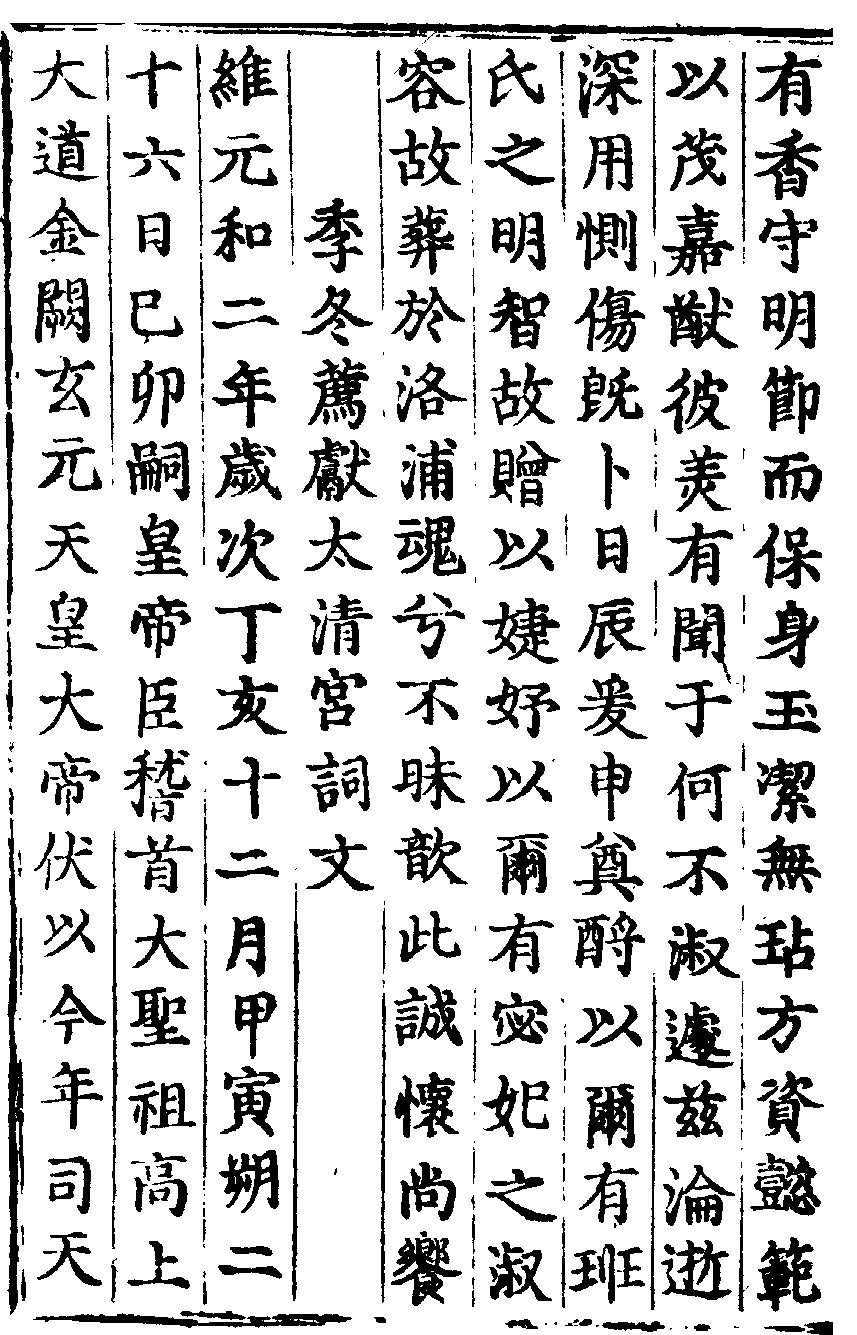 有香守明節而保身玉潔無玷方資懿範
以茂嘉猷彼美有聞于何不淑遽兹淪逝
深用惻傷旣卜日辰爰申奠酹以爾有班
氏之明智故贈以婕妤以爾有宓妃之淑
容故葬於洛浦魂兮不昧歆此誠懷尚饗
季冬薦獻太清宮詞文
維元和二年歲次丁亥十二月甲寅朔二
十六日巳卯嗣皇帝臣稽首大聖祖高上
大道金闕玄元天皇大帝伏以今年司天